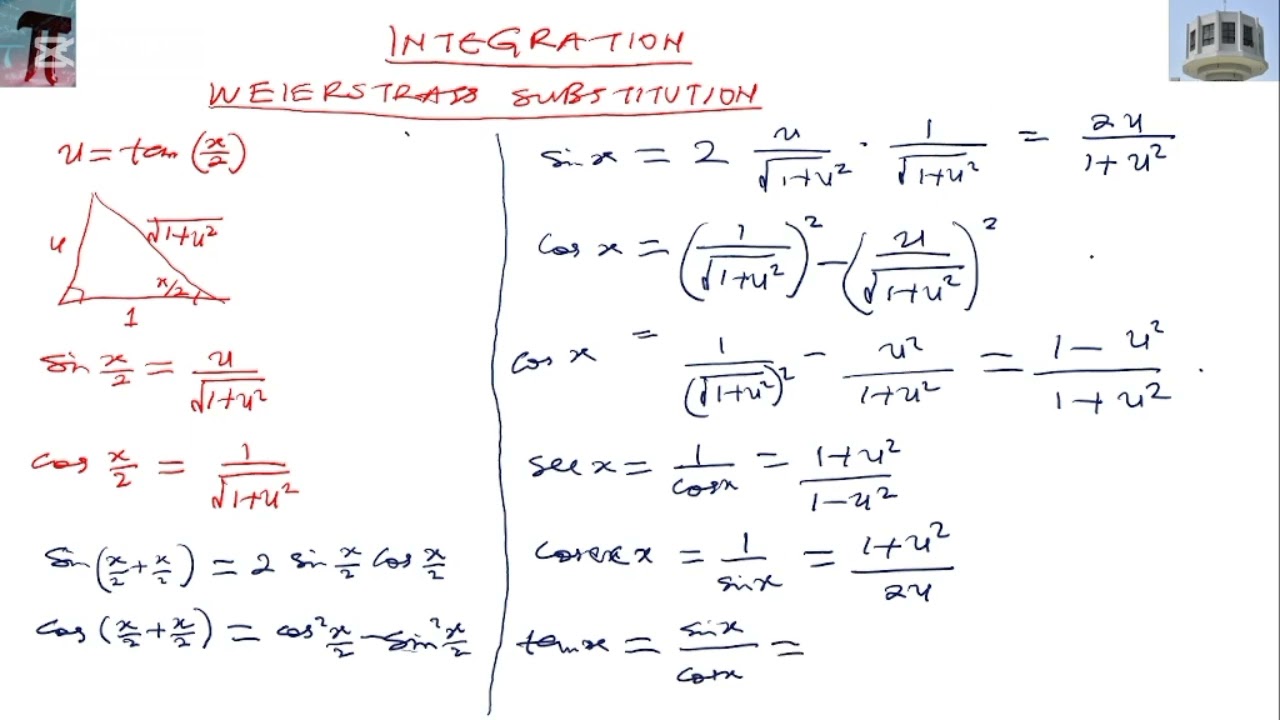 INTEGRATION
WEIERSTRASS SUBSTITUTION
u = tan (x/2)
u
√1+u²
x/2
1
sin x/2 = u/√1+u²
cos x/2 = 1/√1+u²
Sin(x/2 + x/2) = 2 sin x/2 cos x/2
cos (x/2 + x/2) = cos² x/2 − sin² x/2
sin x = 2 u/√1+u² · 1/√1+u² = 2u/1+u²
cos x = (1/√1+u²)² − (u/√1+u²)²
cos x = 1/(√1+u²)² − u²/1+u² = 1 − u²/1 + u² .
sec x = 1/cos x = 1+u²/1−u²
cosec x = 1/sin x = 1+u²/2u
tan x = sin x/cos x =